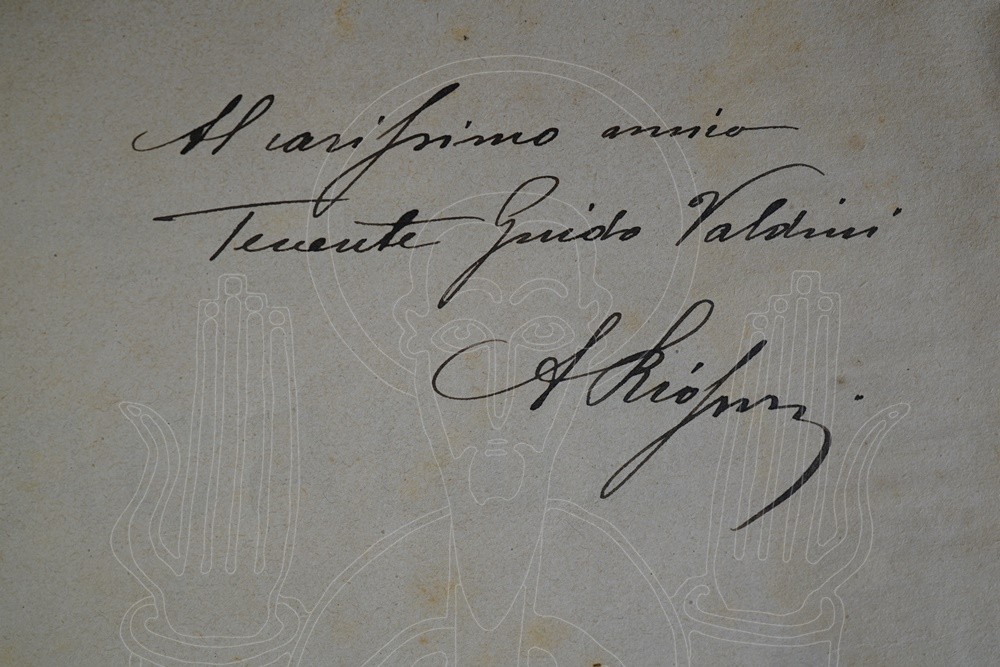 Al carissimo amico
Tenente Guido Valdini
A